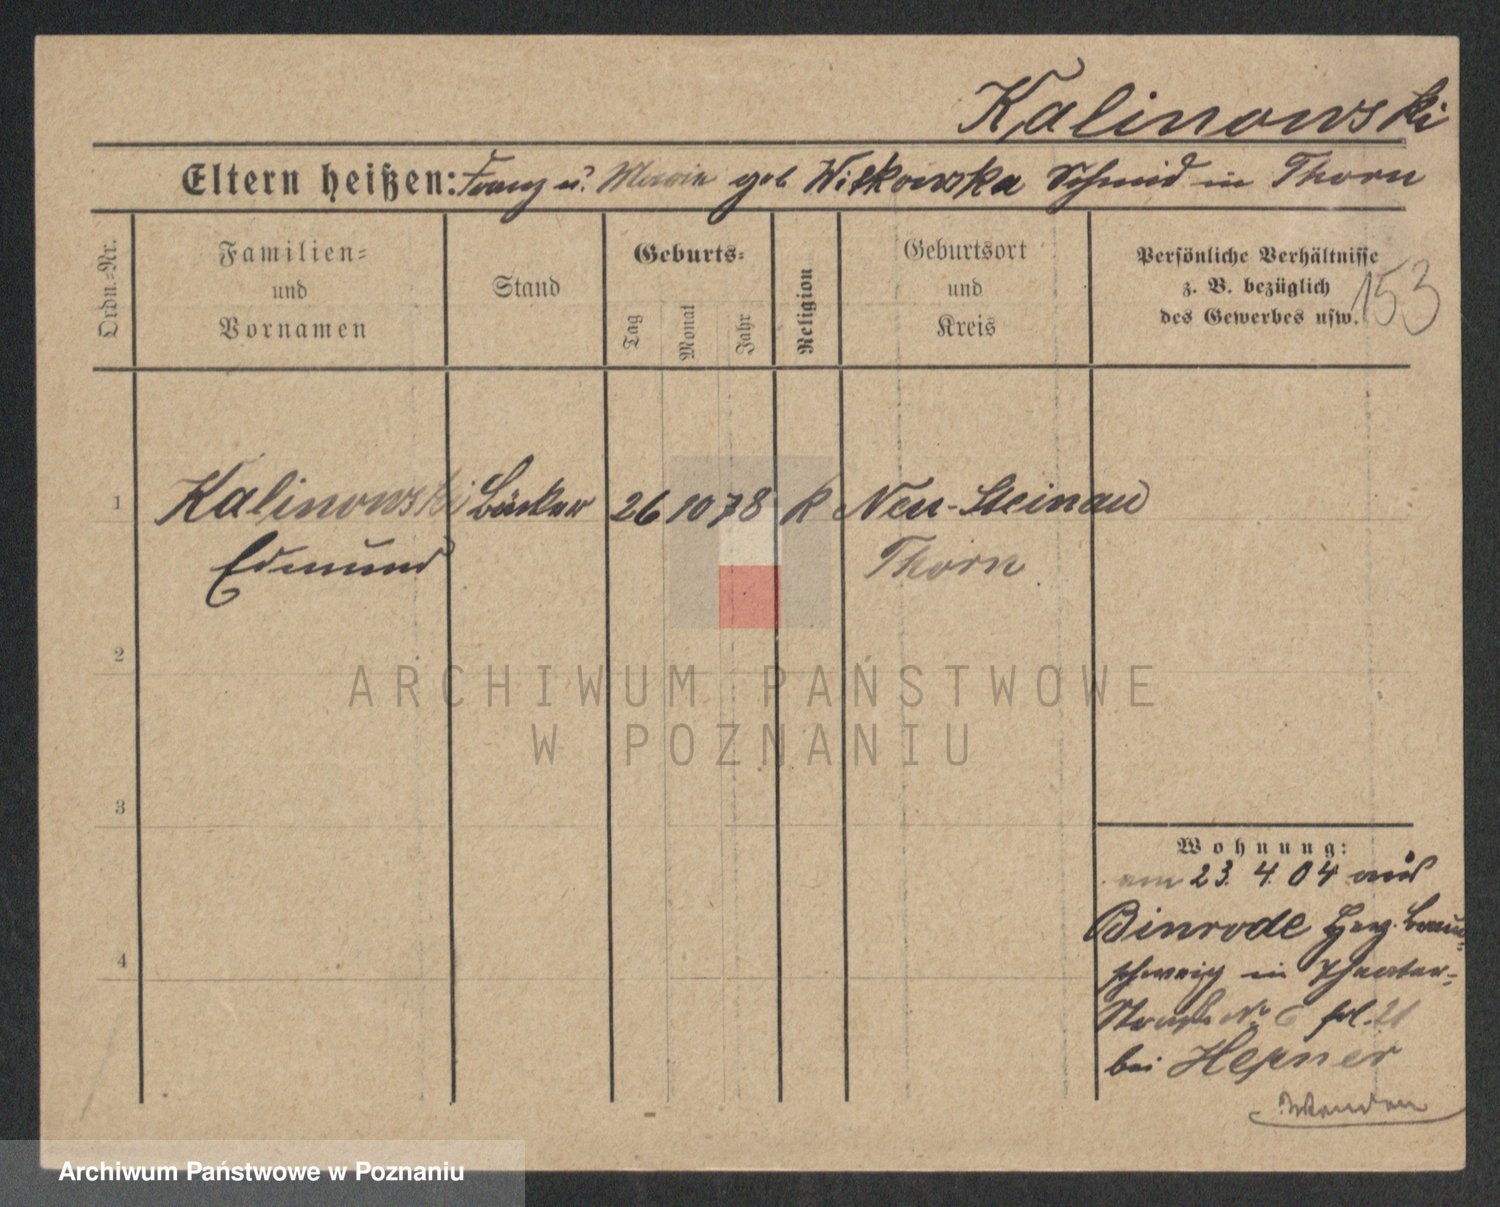 Kalinowski
Eltern heißen: Franz u. Marie geb Witkowska Schmid in Thorn
Ordn.-Nr.
Familien-
und
Vornamen
Stand
Geburts-
Tag
Monat
Jahr
Religion
Geburtsort
und
Kreis
Persönliche Verhältnisse
z. B. bezüglich
des Gewerbes usw.
153
1 Kalinowski Bäcker 26 10 78 K Neu-Steinau
Edmund Thorn
2
3
4
Wohnung:
am 23. 4. 04 aus
Binrode Herz. Braun-
schweig in Theater-
Straße No 6 fol. 21
bei Hepner
Wenden
ARCHIWUM PAŃSTWOWE
W POZNANIU
Archiwum Państwowe w Poznaniu